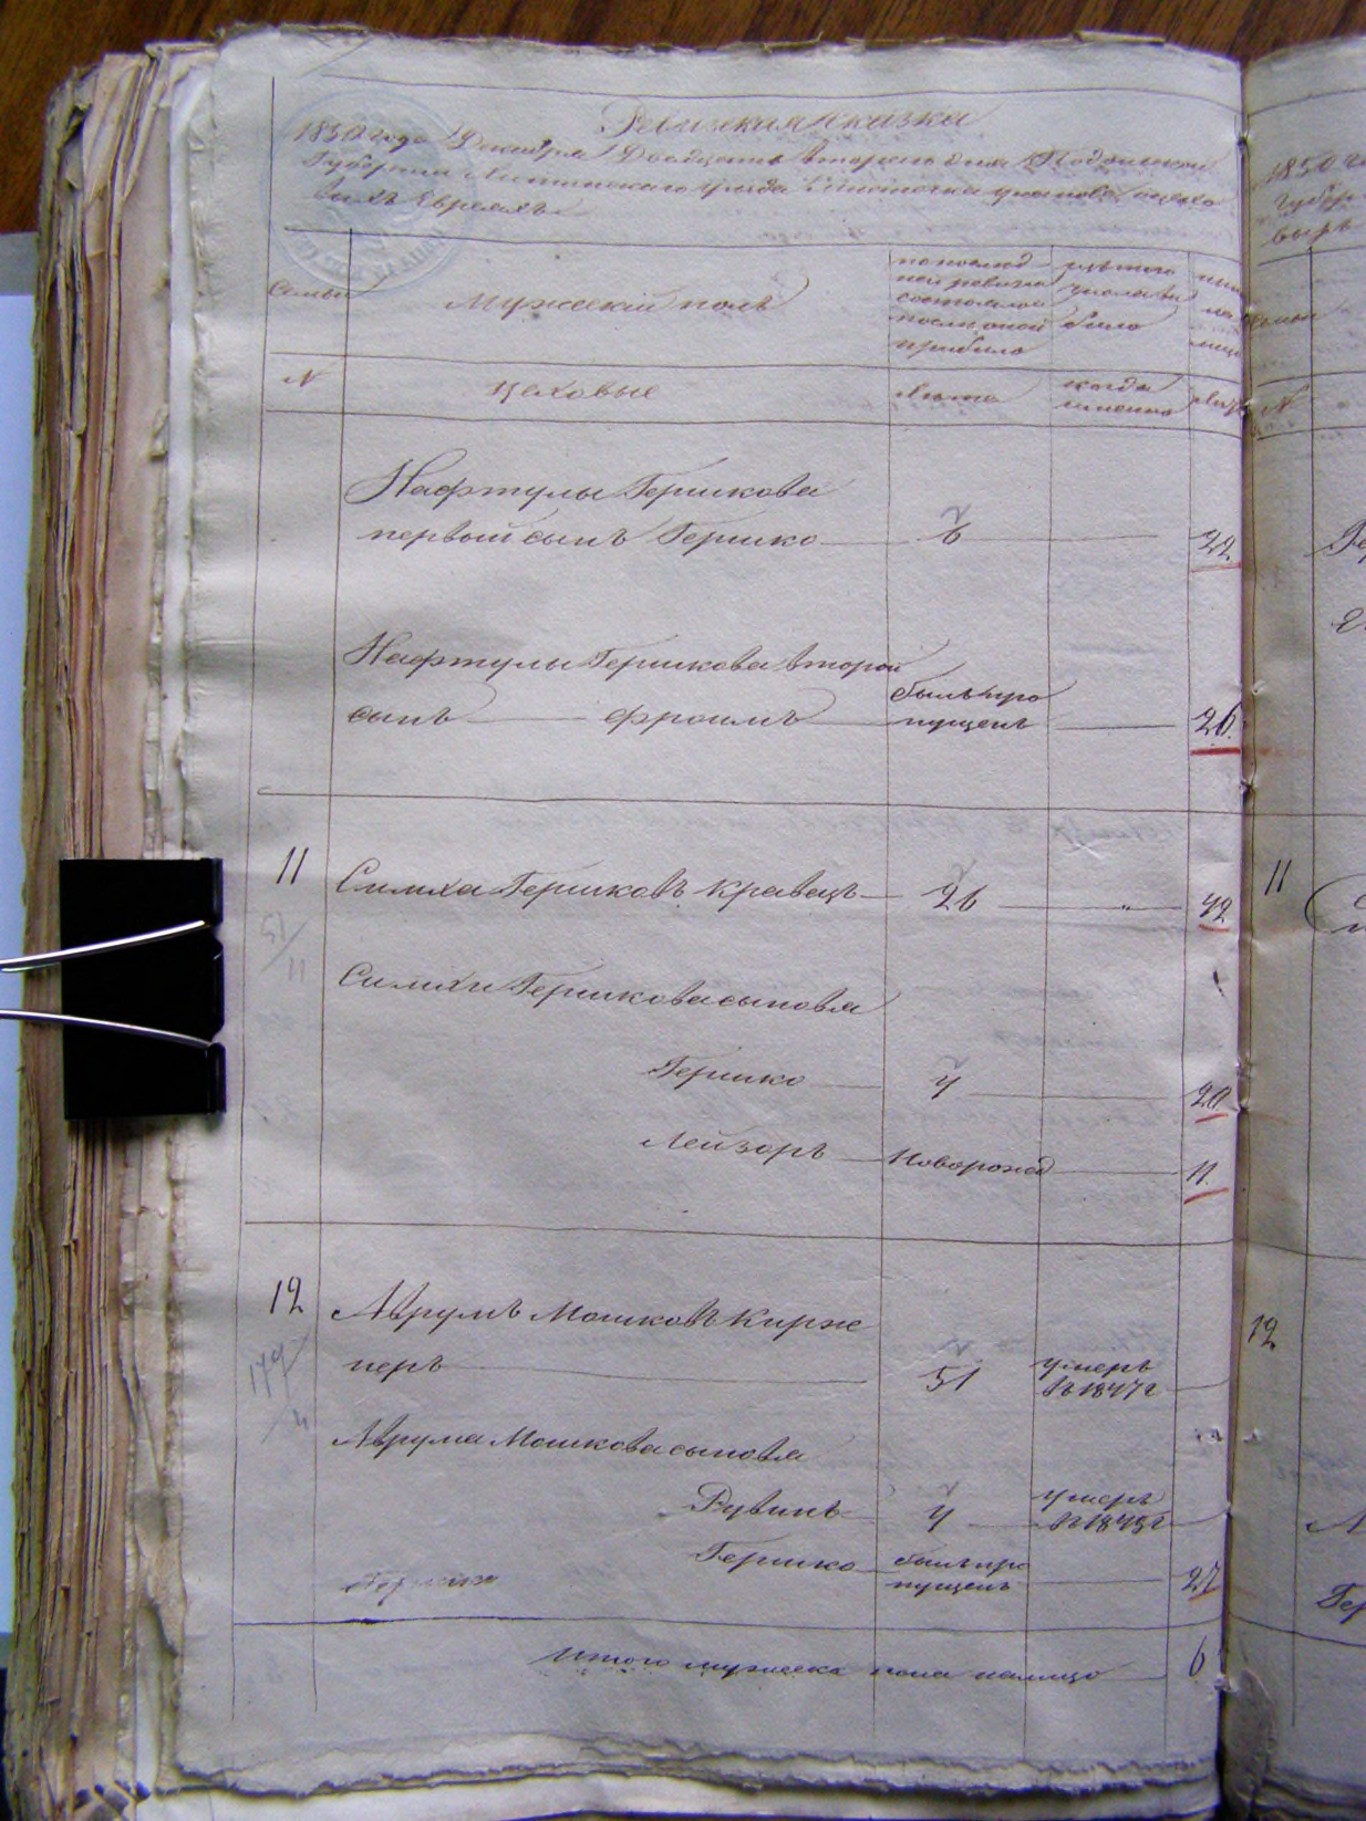 Ревизская сказка
1850 года Декабря Двадцать второго дня Подольской
Губернии Литинскаго уезда местечка о цехо
выхъ Евреяхъ
Семьи
Мужескій полъ
по послед
ней ревизіи
состояло и
после оной
прибыло
изъ того
числа вы
было
ныне
на
лицо
N
цеховые
лета
когда
именно
лета
Нафтулы Гершкова
первый сынъ Гершко 6 22
Нафтулы Гершкова второй
сынъ Фроимъ былъ про
пущенъ 26.
11 Симха Гершковъ Кравецъ 26 " 42
Симхи Гершкова сыновья
Гершко 4 20
Лейзоръ новорожд 11.
12 Аврумъ Мошковъ Кирж
неръ 51 умеръ
въ 1847 г
Аврума Мошкова сыновья
Рувинъ 4 умеръ
Гершко былъ про
пущенъ 27
итого мужеска пола налицо 6
1850 г
губер
выхъ
N
11
12
Гер